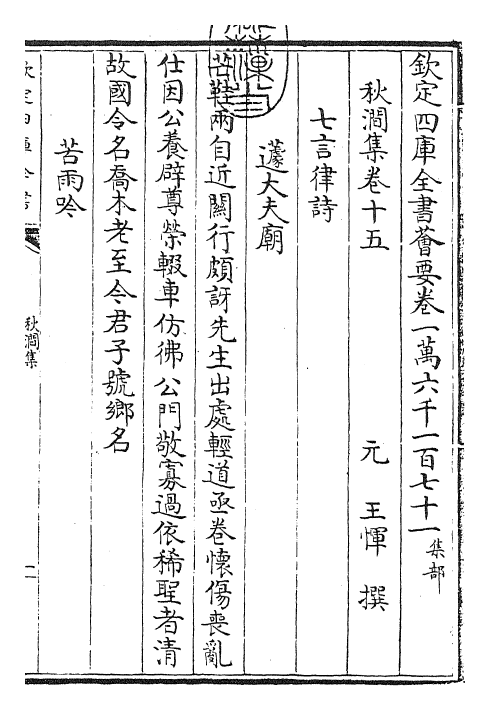 欽定四庫全書薈要卷一萬六千一百七十一集部
秋澗集卷十五 元 王惲 撰
七言律詩
蘧大夫廟
芒鞋兩自近關行頗訝先生出處輕道亟卷懷傷喪亂
仕因公養辟尊榮輟車仿彿公門敬寡過依稀聖者清
故國令名喬木老至今君子號鄉名
苦雨吟
秋澗集